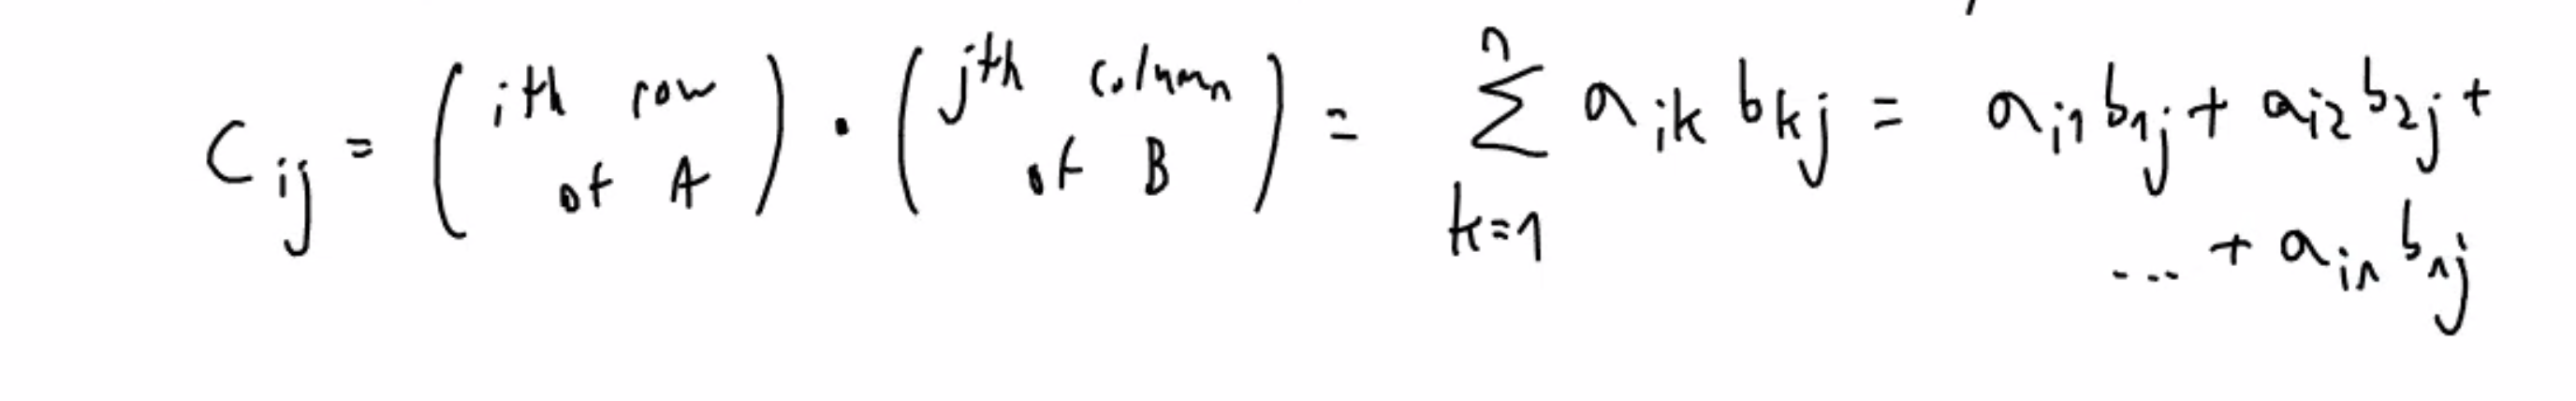 C_ij = (ith row of A) · (jth column of B) = ∑_{k=1}^{n} a_ik b_kj = a_i1 b_1j + a_i2 b_2j +
... + a_in b_nj